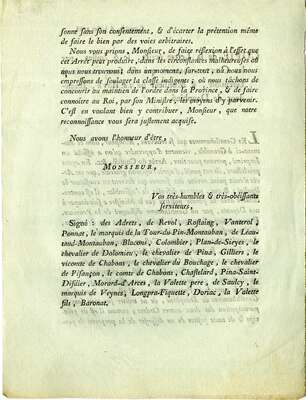 sonne sans son consentement, & d'écarter la prétention même
de faire le bien par des voies arbitraires.
Nous vous prions, Monsieur, de faire réflexion à l'effet que
cet Arrêt peut produire, dans les circonstances malheureuses où
nous nous trouvons; dans un moment, surtout, où nous nous
empressons de soulager la classe indigente; où nous tâchons de
concourir au maintien de l'ordre dans la Province, & de faire
connoître au Roi, par son Ministre, les moyens d'y parvenir.
C'est en voulant bien y contribuer, Monsieur, que notre
reconnoissance vous sera justement acquise.
Nous avons l'honneur d'être,
MONSIEUR,
Vos très-humbles & très-obéissants
serviteurs,
Signé: des Adrets, de Revol, Rostaing, Vanterol,
Ponnat, le marquis de la Tour-du-Pin-Montauban, de Leau-
taud-Montauban, Blacons, Colombier, Plan-de-Sieyes, le
chevalier de Dolomieu, le chevalier de Pina, Galliers, le
vicomte de Chabons, le chevalier du Bouchage, le chevalier
de Pisançon, le comte de Chabons, Chastelard, Pina-Saint-
Didier, Morard-d'Arces, la Valette pere, de Saulcy, le
marquis de Veynes, Longpra-Fiquette, Doriac, la Valette
fils, Baronat.